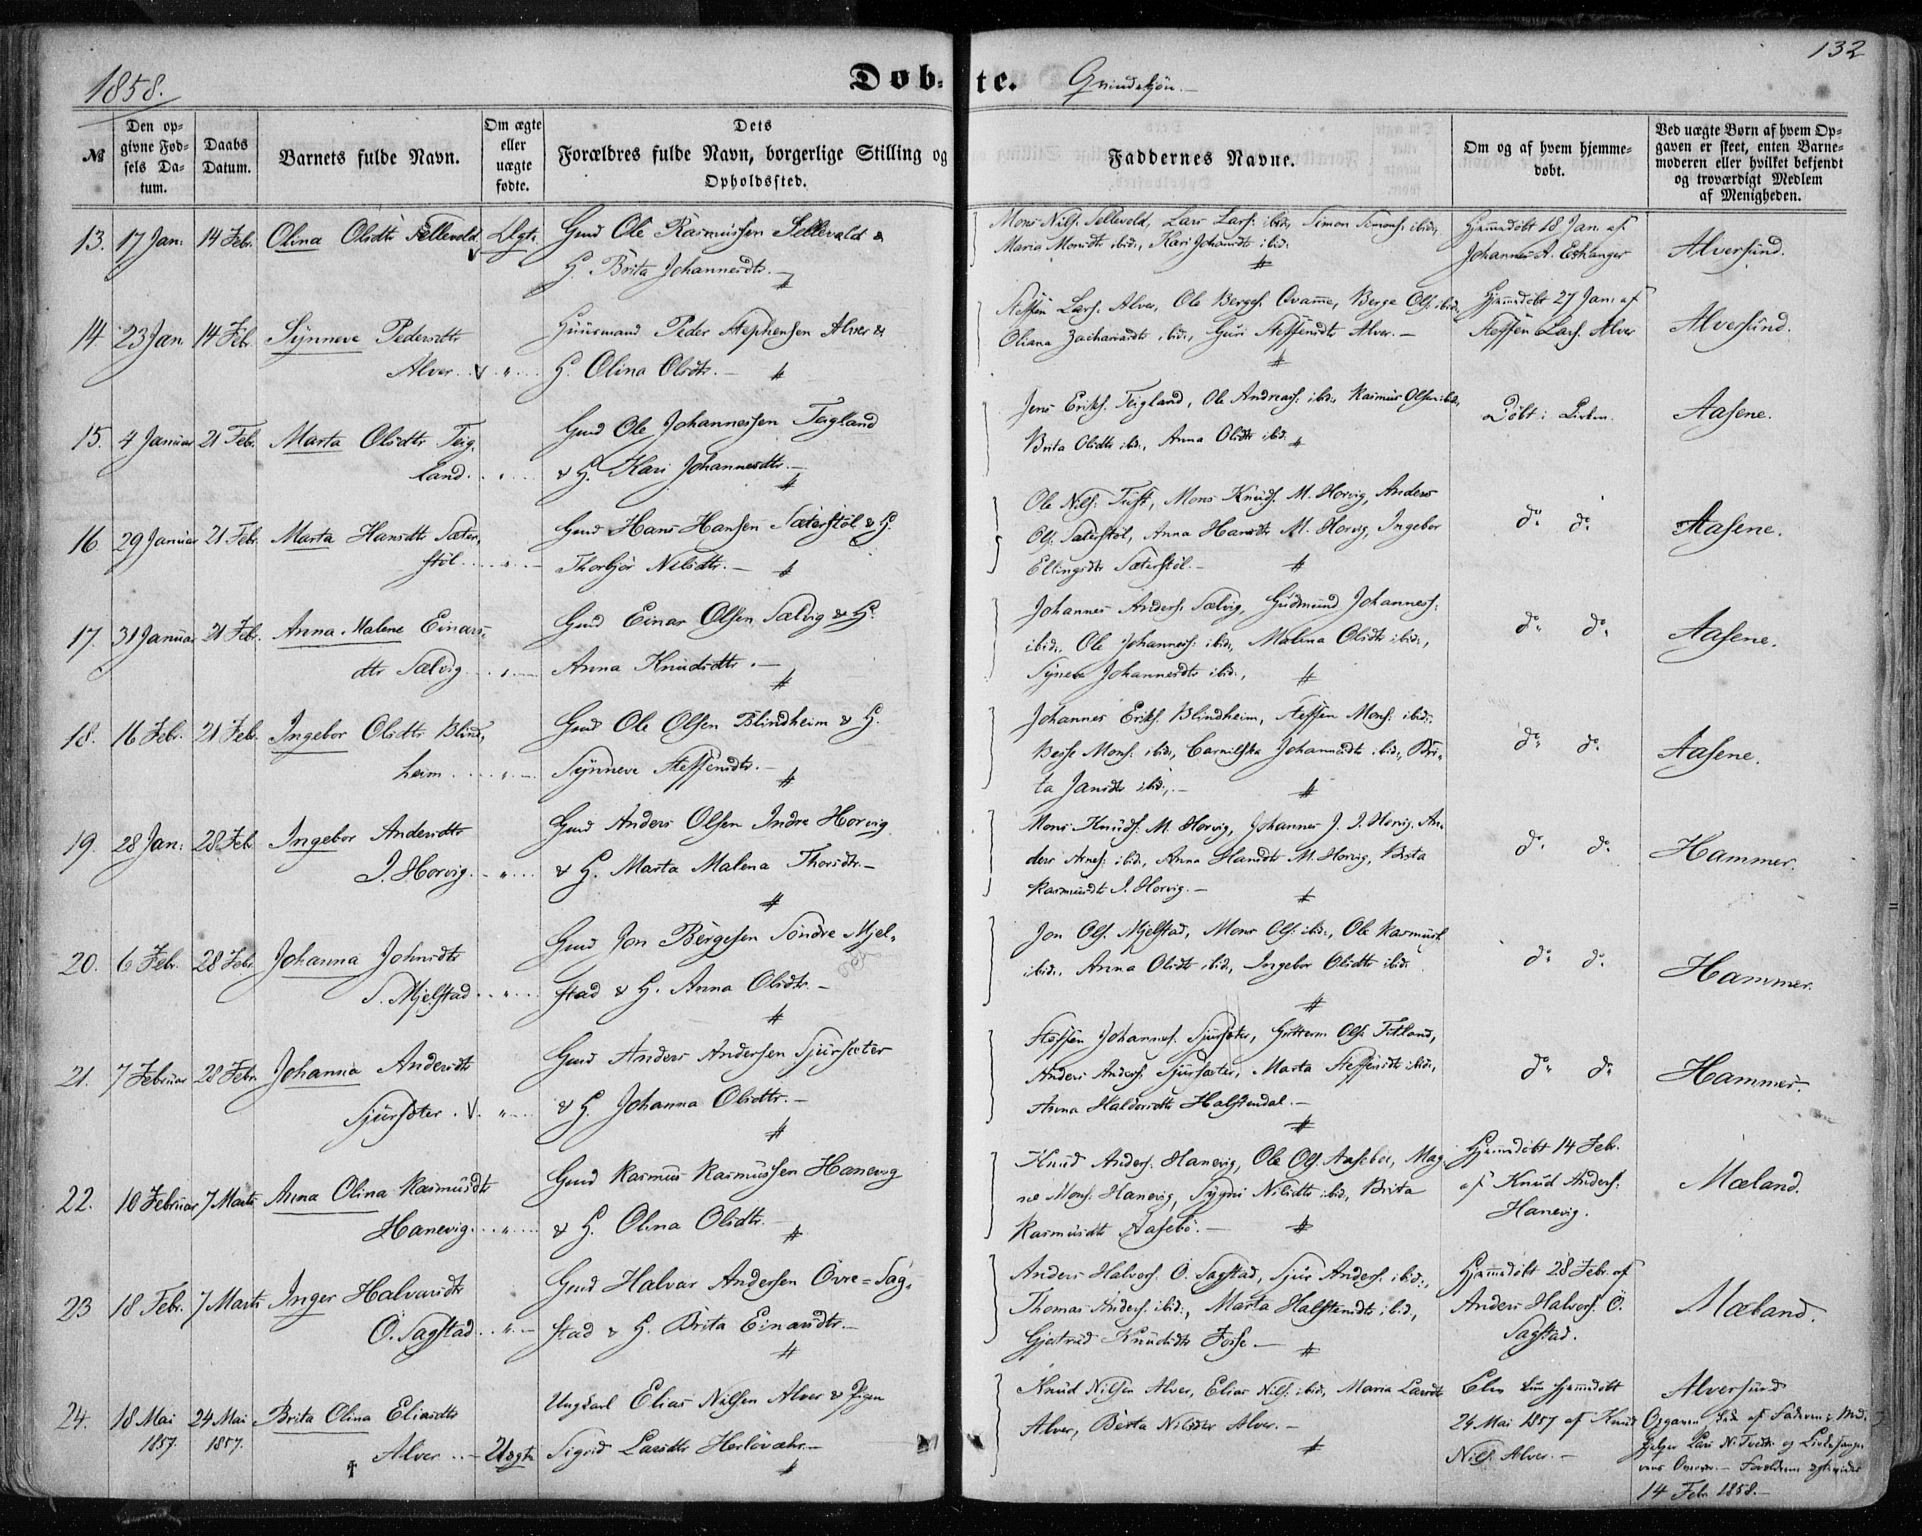 132
1858.
Døb-
te.
Qvindekjøn.
№
Den op-
givne Fød-
sels Da-
tum.
Daabs
Datum.
Barnets fulde Navn.
Om ægte
eller
uægte
fødte.
Dets
Forældres fulde Navn, borgerlige Stilling og
Opholdssted.
Faddernes Navne.
Om og af hvem hjemme-
døbt.
Ved uægte Børn af hvem Op-
gaven er skeet, enten Barne-
moderen eller hvilket bekjendt
og troværdigt Medlem
af Menigheden.
13. 17 Jan: 14 Febr. Olina Olsdtr Sellevold Ægte
Gmd Ole Rasmussen Sellevold &
H. Brita Johannesdtr.
Mons Nils. Sellevold, Lars Lars: ibid., Simon Simons: ibid.,
Maria Monsdtr ibid., Kari Johansdtr ibid.
Hjemmedøbt 18 Jan. af
Johannes A. Eskanger
Alversund.
14 23 Jan 14 Feb. Synneve Pedersdtr
Alver
Huusmand Peder Stephensen Alver &
H. Olina Olsdtr.
Steffen Lars. Alver, Ole Berges. Qvamme, Berge Ols. ibid.,
Oliana Zachariasdtr ibid., Guri Steffensdtr Alver.
Hjemmedøbt 27 Jan. af
Steffen Lars. Alver
Alversund.
15. 4 Januar 21 Febr. Marta Olsdtr Teig-
land.
Gmd Ole Johannessen Teigland
& H. Kari Johannesdtr.
Jens Eriks. Teigland, Ole Andreas: ibid., Rasmus Olsen ibid.,
Brita Olsdtr ibid., Anna Olsdtr ibid.
Døbt i Kirken.
Aasene.
16 29 Januar 21 Febr. Marta Hansdtr Sæter-
støl.
Gmd Hans Hansen Sæterstøl & H.
Thorbjør Nilsdtr.
Ole Nils. Tuft, Mons Knuds. M. Horvig, Anders
Ols. Sæterstøl, Anna Hansdtr M. Horvig, Ingebor
Ellingsdtr Sæterstøl.
do do
Aasene.
17. 31 Januar 21 Febr. Anna Malene Einars-
dtr Sælvig
Gmd Einar Olsen Sælvig & H.
Anna Knudsdtr.
Johannes Anders. Sælvig, Gudmund Johanness:
ibid., Ole Johanness: ibid., Malena Olsdtr ibid.,
Syneve Johannesdtr ibid.,
do do
Aasene.
18. 16 Febr. 21 Febr. Ingebor Olsdtr Blind-
heim
Gmd Ole Olsen Blindheim & H.
Synneve Steffensdtr.
Johannes Eriks. Blindheim, Steffen Mons. ibid.,
Besse Mons. ibid., Johannesdtr ibid., Bri-
ta Jansdtr ibid.,
do do
Aasene.
19. 28 Jan: 28 Febr Ingebor Andersdtr
I. Horvig.
Gmd Anders Olsen Indre Horvig
& H. Marta Malena Thorsdtr.
Mons Knuds. M. Horvig, Johannes J. I. Horvig, An-
ders Arnes. ibid., Anna Hansdtr M. Horvig, Brita
Rasmusdtr I. Horvig.
do do
Hammer.
20. 6 Febr. 28 Febr. Johanna Johnsdtr
S. Mjelstad
Gmd Jon Bergesen Søndre Mjel-
stad & H. Anna Olsdtr.
Jon Ols. Mjelstad, Mons Ols. ibid., Ole Rasmuss.
ibid., Anna Olsdtr ibid., Ingebor Olsdtr ibid.
do do
Hammer.
21. 7 Februar 28 Febr. Johanna Andersdtr
Sjursæter
Gmd Anders Andersen Sjursæter
& H. Johanna Olsdtr.
Steffen Johannes. Sjursæter, Guttorm Ols. Titland,
Anders Anders. Sjursæter, Marta Steffensdtr ibid.,
Anna Haldorsdtr Halstendal.
do do
Hammer.
22. 10 Februar 7 Marts Anna Olina Rasmusdtr
Hanevig
Gmd Rasmus Rasmussen Hanevig
& H. Olina Olsdtr.
Knud Anders. Hanevig, Ole Ols. Aasebø, Mag-
ne Mons. Hanevig, Sygni Nilsdtr ibid., Brita
Rasmusdtr Aasebø.
Hjemmedøbt 14 Febr.
af Knud Anders:
Hanevig.
Mæland.
23 18 Febr. 7 Marts Inger Halvorsdtr
Ö. Sagstad
Gmd Halvar Andersen Övre-Sag-
stad & H. Brita Einarsdtr.
Anders Halvors. Ö. Sagstad, Sjur Anders. ibid.,
Thomas Anders. ibid., Marta Halstensdtr ibid.,
Gjertrud Knudsdtr Fosse
Hjemmedøbt 28 Febr. af
Anders Halvors. Ö.
Sagstad.
Mæland.
24. 18 Mai 1857. 24 Mai 1857. Brita Olina Eliasdtr
Alver Uægte
Ungkarl Elias Nilsen Alver & Pigen
Sigrid Larsdtr
Knud Nilsen Alver, Elias Nils. ibid., Maria Larsdtr
Alver, Berta Nilsdtr Alver.
Blev kun hjemmedøbt
24 Mai 1857 af Knud
Nils. Alver.
Alversund
Opgaven skeet af Faderen i Med-
hjelper Lars N. Tvedts og
Forældrene ægteviede
14 Febr. 1858.